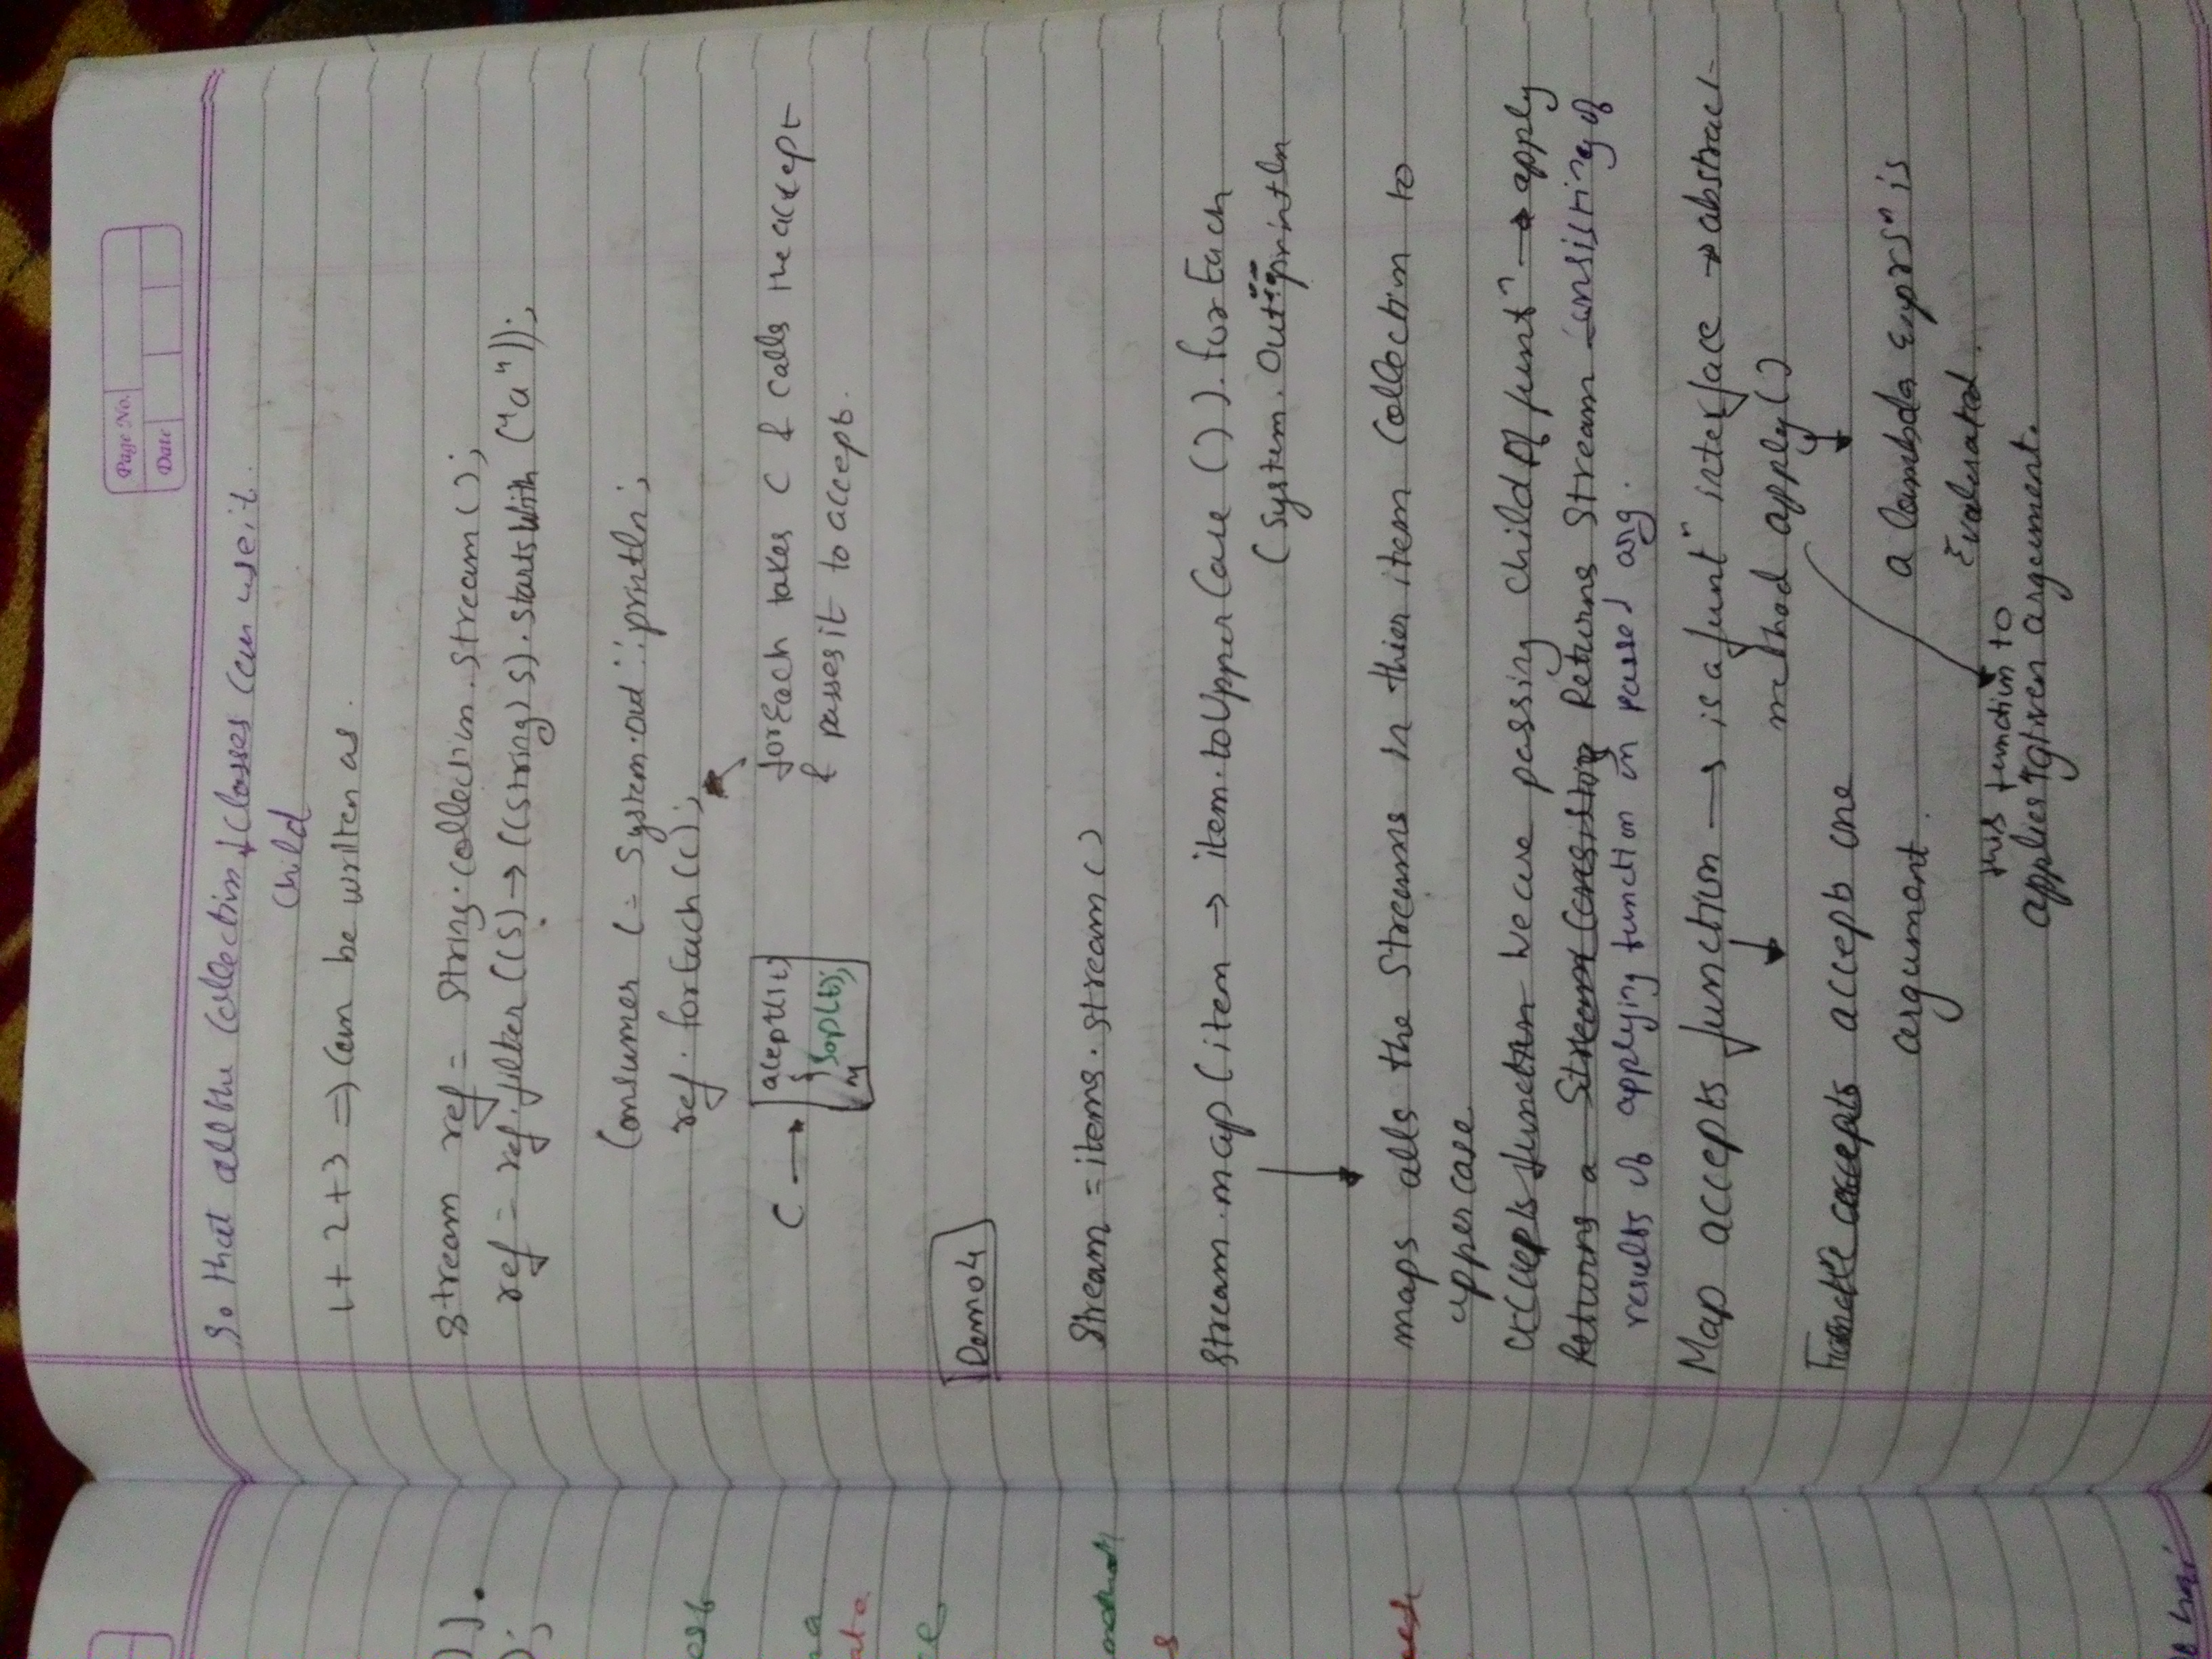 Page No.
Date
So that all the Collection classes can use it.
Child
1+2+3 => Can be written as.
Stream ref = String.collection.stream();
ref = ref.filter((s) → ((String) s).startsWith("a"));
Consumer C = System.out::println;
ref.forEach(c);
C → acept(1t)
{
Sop(t);
}
forEach takes C & calls the accept
& passes it to accept.
Demo4
Stream = items.stream()
Stream.map(item → item.toUpperCase()).forEach
(System.Out::println
maps alls the Streams in thier item Collection to
uppercase
accepts function We are passing child of funtⁿ → apply
Returns a Stream Consisting Returns Stream Consisting of
results of applying function on passed arg.
Map accepts function → is a funtⁿ interface → abstract
method apply()
accepts accept one
argument.
a lambda Exprsⁿ is
Evaluated.
this function to
applies ↑ given argument.
).
);
ate
ce
s
hai